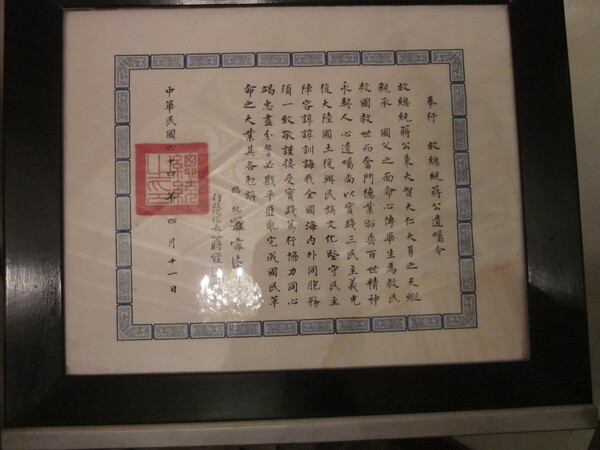 奉行 故總統蔣公遺囑令
故總統蔣公秉大智大仁大勇之天縱
親承 國父之面命心傳畢生為救民
救國救世而奮鬥德業昭垂百世精神
永契人心遺囑尚以實踐三民主義光
復大陸國土復興民族文化堅守民主
陣容諄諄訓誨我全國海內外同胞務
須一致敬謹接受實踐篤行協力同心
竭忠盡分誓必戡平匪亂完成國民革
命之大業其各勉旃
總統 嚴家淦
行政院院長 蔣經
中華民國六十四年四月十一日